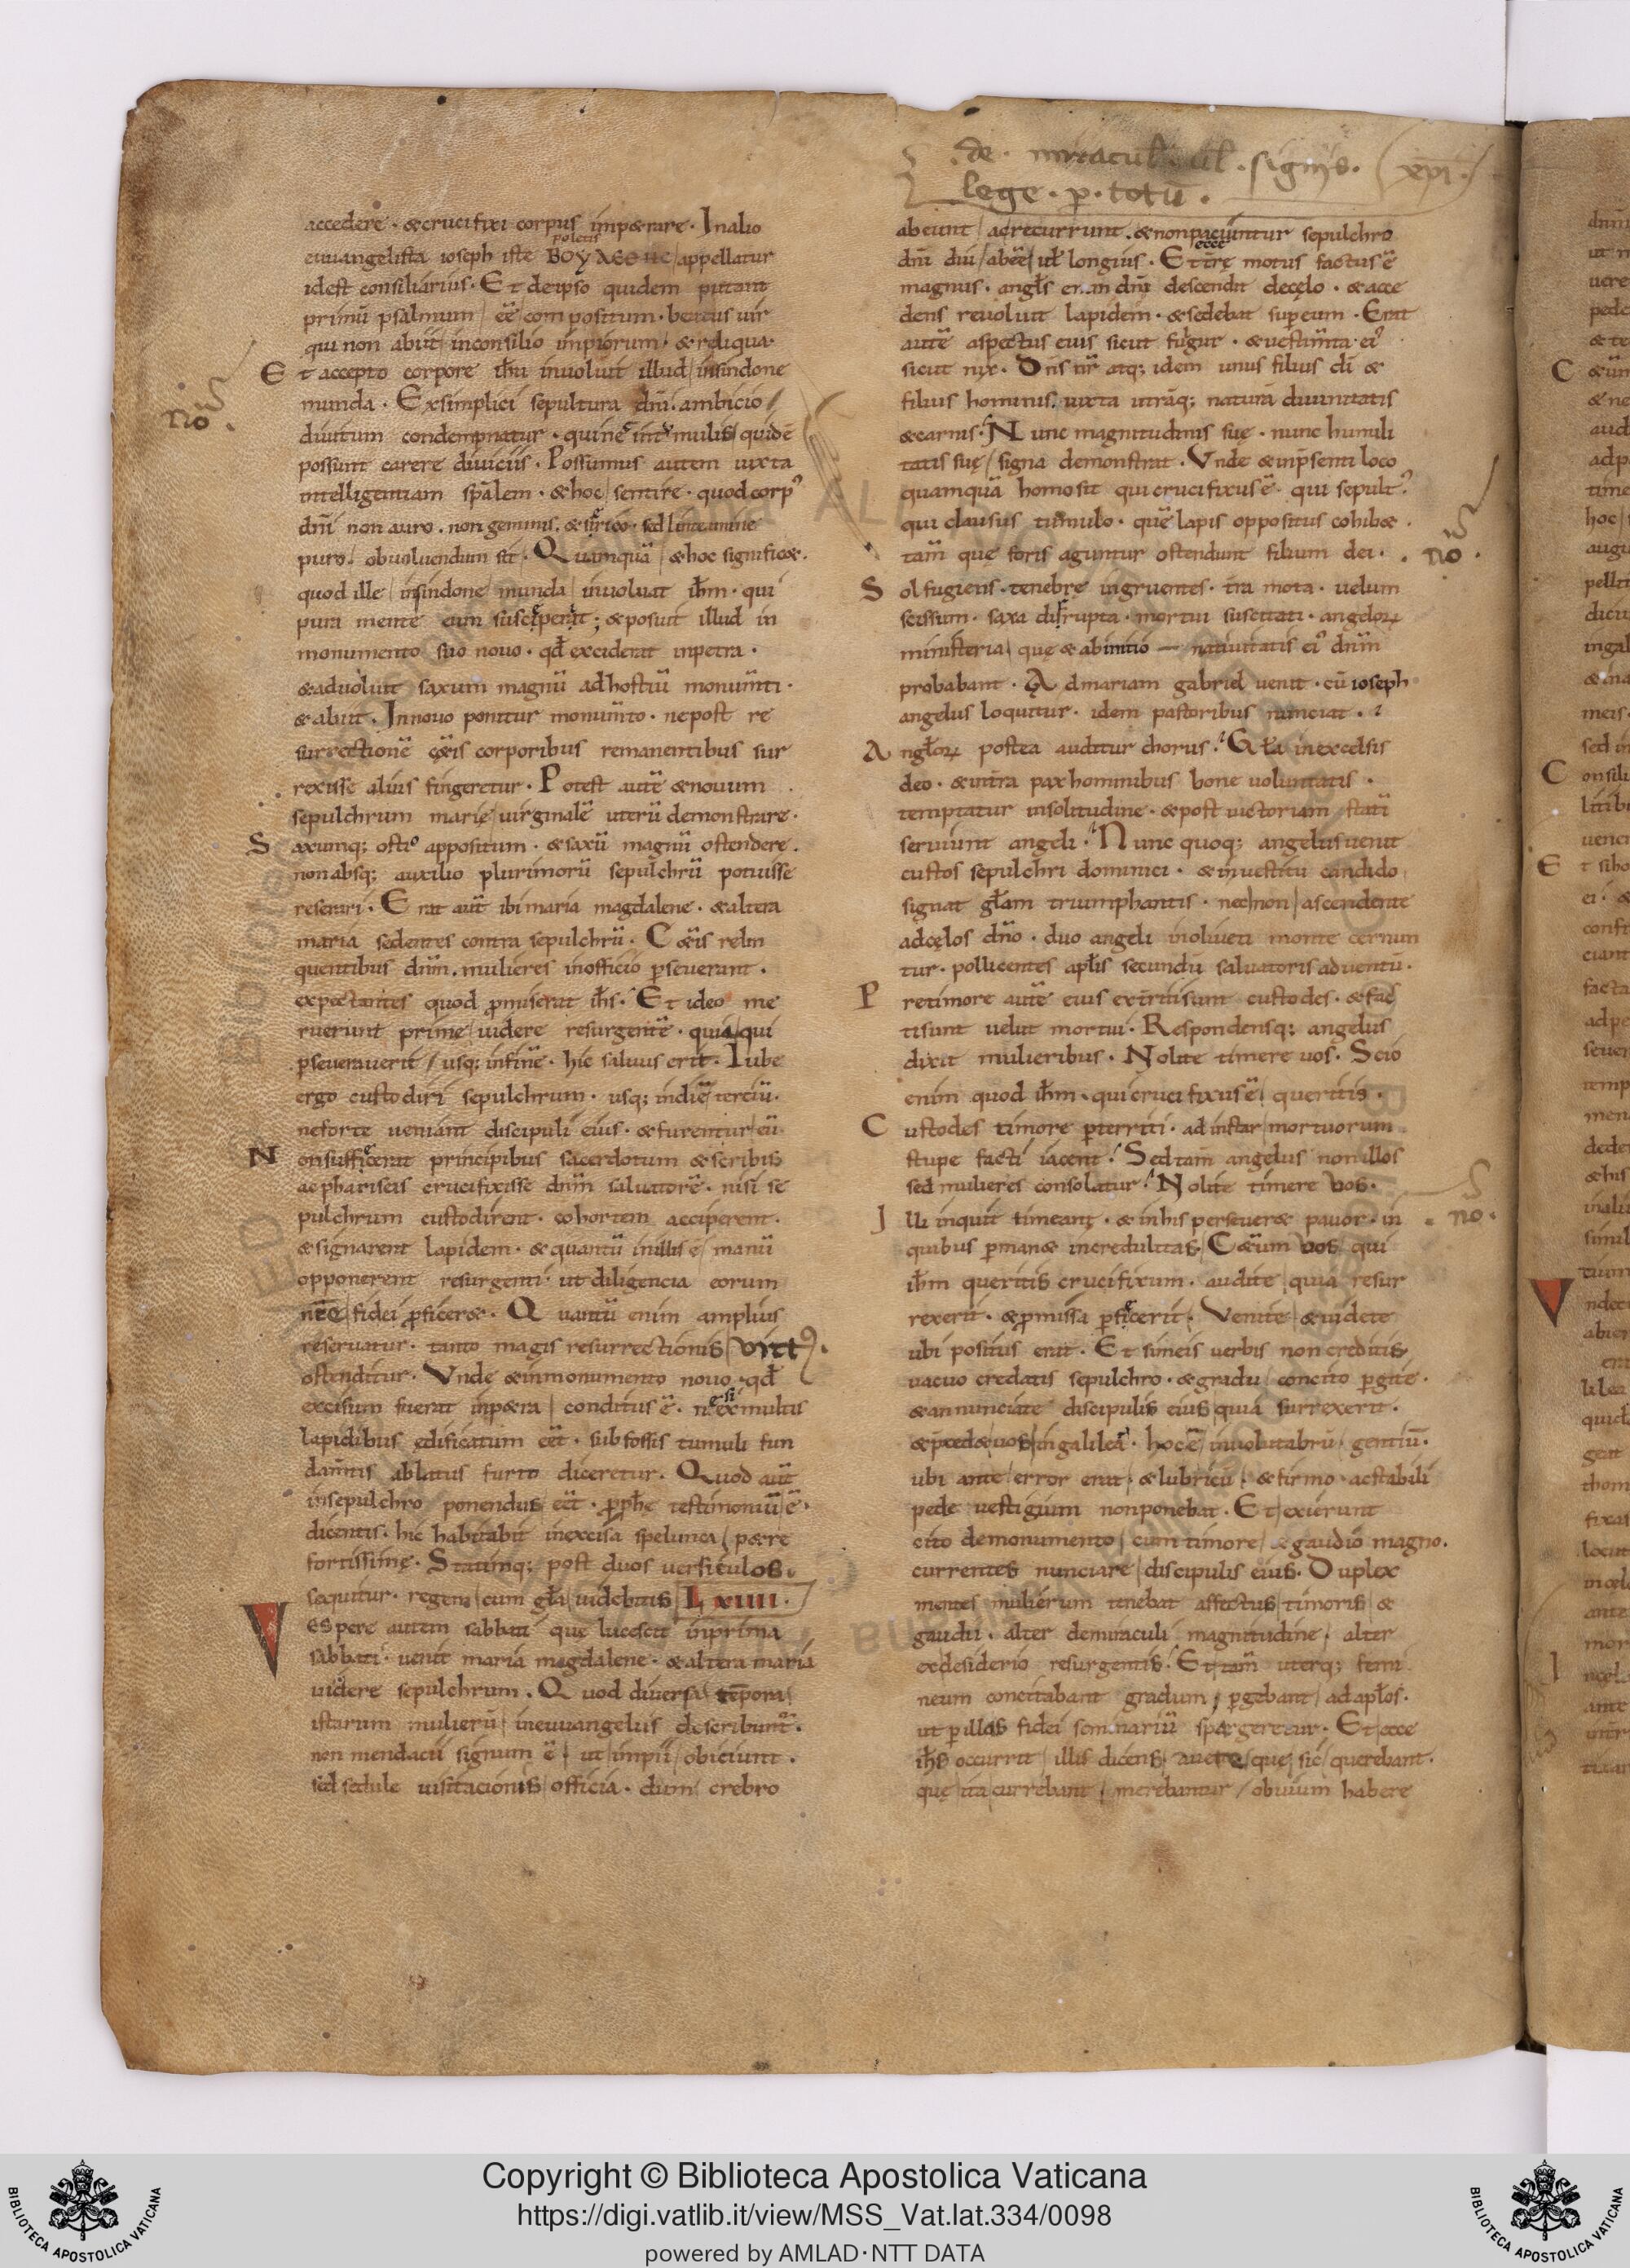 .de. miracul. ul. signis. (xpi.)
lege. p. totū.
accedere · & crucifixi corpus impetrare · In alio
euuangelista ioseph iste ΒΟΥΛΕΘΤΗC appellatur
id est consiliarius · Et de ipso quidem putant
primū psalmum eē compositum · beatus uir
qui non abiit in consilio impiorum · & reliqua ·
Et accepto corpore ihū inuoluit illud in sindone
munda · Ex simplici sepultura dnī ambicio
diuitum condempnatur · qui ne in tumulis quidē
possunt carere diuiciis · Possumus autem iuxta
intelligentiam spālem · & hoc sentire · quod corpꝰ
dnī non auro · non gemmis · & sirico · sed linteamine
puro obuoluendum sit · Quamquā & hoc significet ·
quod ille in sindone munda inuoluat ihm · qui
pura mente eum susceperit ; & posuit illud in
monumento suo nouo · qđ exciderat in petra ·
& aduoluit saxum magnū ad hostiū monumti ·
& abiit · In nouo ponitur monumto · ne post re
surrectionē cęteris corporibus remanentibus sur
rexisse alius fingeretur · Potest autē & nouum
sepulchrum marię uirginalē uterū demonstrare ·
Saxumq; ostiꝰ appositum · & saxū magnū ostendere ·
non absq; auxilio plurimorū sepulchrū potuisse
reserari · Erat aut̄ ibi maria magdalene · & altera
maria sedentes contra sepulchrū · Cęteris relin
quentibus dnm · mulieres in officio pseuerant ·
expectantes quod promiserat ihs · Et ideo me
ruerunt prime uidere resurgentē · quia qui
pseuerauerit usq; in finē · hic saluus erit · Iube
ergo custodiri sepulchrum · usq; in diē terciū ·
ne forte ueniant discipuli eius · & furentur eū ·
Non suffecerat principibus sacerdotum & scribis
ac phariseis crucifixisse dnm saluatorē · nisi se
pulchrum custodirent · cohortem acciperent ·
& signarent lapidem · & quantū in illis ē manū
opponerent resurgenti · ut diligencia eorum
nrē fidei pficeret · Quantū enim amplius
reseruatur · tanto magis resurrectionis uirtꝰ ·
ostenditur · Vnde & in monumento nouo · qđ
excisum fuerat in petra conditus ē · ne si ex multis
lapidibus edificatum eēt · suffossis tumuli fun
damtis ablatus furto diceretur · Quod aut̄
in sepulchro ponendus eēt · pphę testimoniū ē ·
dicentis · hic habitabit in excelsa spelunca petre
fortissimę · Statimq; post duos uersiculos ·
sequitur · regem cum gła uidebitis LXIIII ·
Vespere autem sabbati quę lucescit in prima
sabbati · uenit maria magdalene · & altera maria
uidere sepulchrum · Quod diuersa tēpora
istarum mulierū in euuangeliis describunt̄ ·
non mendacii signum ē ut impii obiciunt ·
sed sedule uisitacionis officia · dum crebro
abeunt ac recurrunt · & non paciuntur sepulchro
dnī diu abeē ut longius · Et ecce tīrę motus factus ē
magnus · angls enim dnī descendit de cęlo · & acce
dens reuoluit lapidem · & sedebat sup eum · Erat
autē aspectus eius sicut fulgur · & uestimta eiꝰ
sicut nix · Dns nr̄ atq; idem unus filius dī &
filius hominis iuxta utrāq; naturā diuinitatis
& carnis · Nunc magnitudinis suę · nunc humili
tatis suę signa demonstrat · Vnde & in psenti loco
quamquā homo sit qui crucifixus ē · qui sepultꝰ ·
qui clausus tumulo · quē lapis oppositus cohibet ·
tam̄ quę foris aguntur ostendunt filium dei ·
Sol fugiens · tenebrę ingruentes · tīra mota · uelum
scissum · saxa dirupta · mortui suscitati · angelorꝝ
ministeria quę & ab initio — natiuitatis eiꝰ dnm
probabant · Ad mariam gabriel uenit · cū ioseph
angelus loquitur · idem pastoribus nunciat ·
Anglorꝝ postea auditur chorus · Gła in excelsis
deo · & in tīra pax hominibus bone uoluntatis ·
temptatur in solitudine · & post uictoriam statī
seruiunt angeli · Nunc quoq; angelus uenit
custos sepulchri dominici · & in uestitu candido
signat głam triumphantis · nec non ascendente
ad cęlos dno · duo angeli in oliueti monte cernun
tur · pollicentes aplis secundū saluatoris aduentū ·
Pre timore autē eius extriti sunt custodes · & fac
ti sunt uelut mortui · Respondensq; angelus
dixit mulieribus · Nolite timere uos · Scio
enim quod ihm · qui crucifixus ē queritis ·
Custodes timore pterriti · ad instar mortuorum
stupefacti iacent · Sed tam̄ angelus non illos
sed mulieres consolatur · Nolite timere uos ·
Illi inquit timeant · & in his perseueret pauor · in
quibus pmanet incredulitas · Cęterum uos qui
ihm queritis crucifixum · audite quia resur
rexerit · & pmissa pfecerit · Venite & uidete
ubi positus erat · Et si meis uerbis non creditis
uacuo credatis sepulchro · & gradu concito pgite ·
& annunciate discipulis eius quia surrexerit ·
& pcedet uos in galilea · hoc ē in uolutabrū gentiū ·
ubi ante error erat · & lubricū · & firmo · ac stabili
pede uestigium non ponebat · Et exierunt
cito de monumento cum timore & gaudio magno ·
currentes nunciare discipulis eius · Duplex
mentes mulierum tenebat affectus timoris &
gaudii · alter de miraculi magnitudine · alter
ex desiderio resurgentis · Et tam̄ uterq; femi
neum concitabant gradum · pgebant ad aplos ·
ut p illas fidei seminariū spargeretur · Et ecce
ihs occurrit illis dicens auete quę sic querebant ·
quę ita currebant merebantur obuium habere
Copyright © Biblioteca Apostolica Vaticana
https://digi.vatlib.it/view/MSS_Vat.lat.334/0098
powered by AMLAD·NTT DATA
BIBLIOTECA APOSTOLICA VATICANA
BIBLIOTECA APOSTOLICA VATICANA